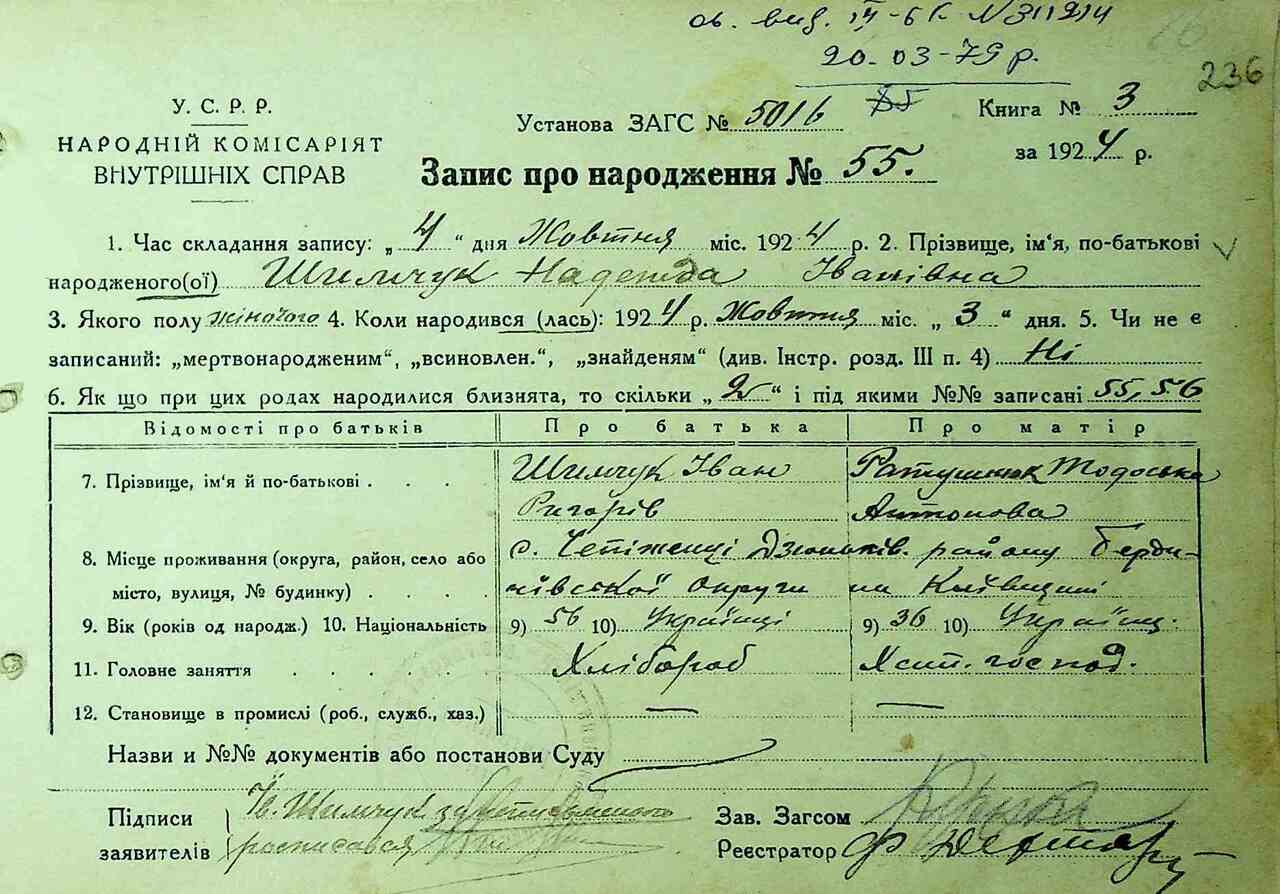 ов. вид. ІІІ-БК №311214
20-03-79 р.
236
У. С. Р. Р.
НАРОДНІЙ КОМІСАРІЯТ
ВНУТРІШНІХ СПРАВ
Установа ЗАГС № 5016 85 Книга № 3
за 1924 р.
Запис про народження № 55.
1. Час складання запису: „ 4 “ дня Жовтня міс. 1924 р. 2. Прізвище, ім‘я, по-батькові
народженого(ої) Шимчук Надежда Іванівна
3. Якого полу жіночого 4. Коли народився (лась): 1924 р. Жовтня міс. „ 3 “ дня. 5. Чи не є
записаний: „мертвонародженим“, „всиновлен.“, „знайденям“ (див. Інстр. розд. III п. 4) Ні
6. Як що при цих родах народилися близнята, то скільки „ 2 “ і під якими №№ записані 55, 56
Відомості про батьків Про батька Про матір
7. Прізвище, ім‘я й по-батькові . . . Шимчук Іван Ратушнюк Тодоська
Ригорів Антонова
8. Місце проживання (округа, район, село або с. Чепіженці Дзюньків. району Берди-
місто, вулиця, № будинку) . . . . чівської округи на Київщині
9. Вік (років од народж.) 10. Національність 9) 56 10) Українці 9) 36 10) Українц.
11. Головне заняття . . . . . Хлібороб Хат. господ.
12. Становище в промислі (роб., служб., хаз.) — —
Назви и №№ документів або постанови Суду
Підписи Ів. Шимчук за
заявителів росписався
Зав. Загсом
Реєстратор Ф